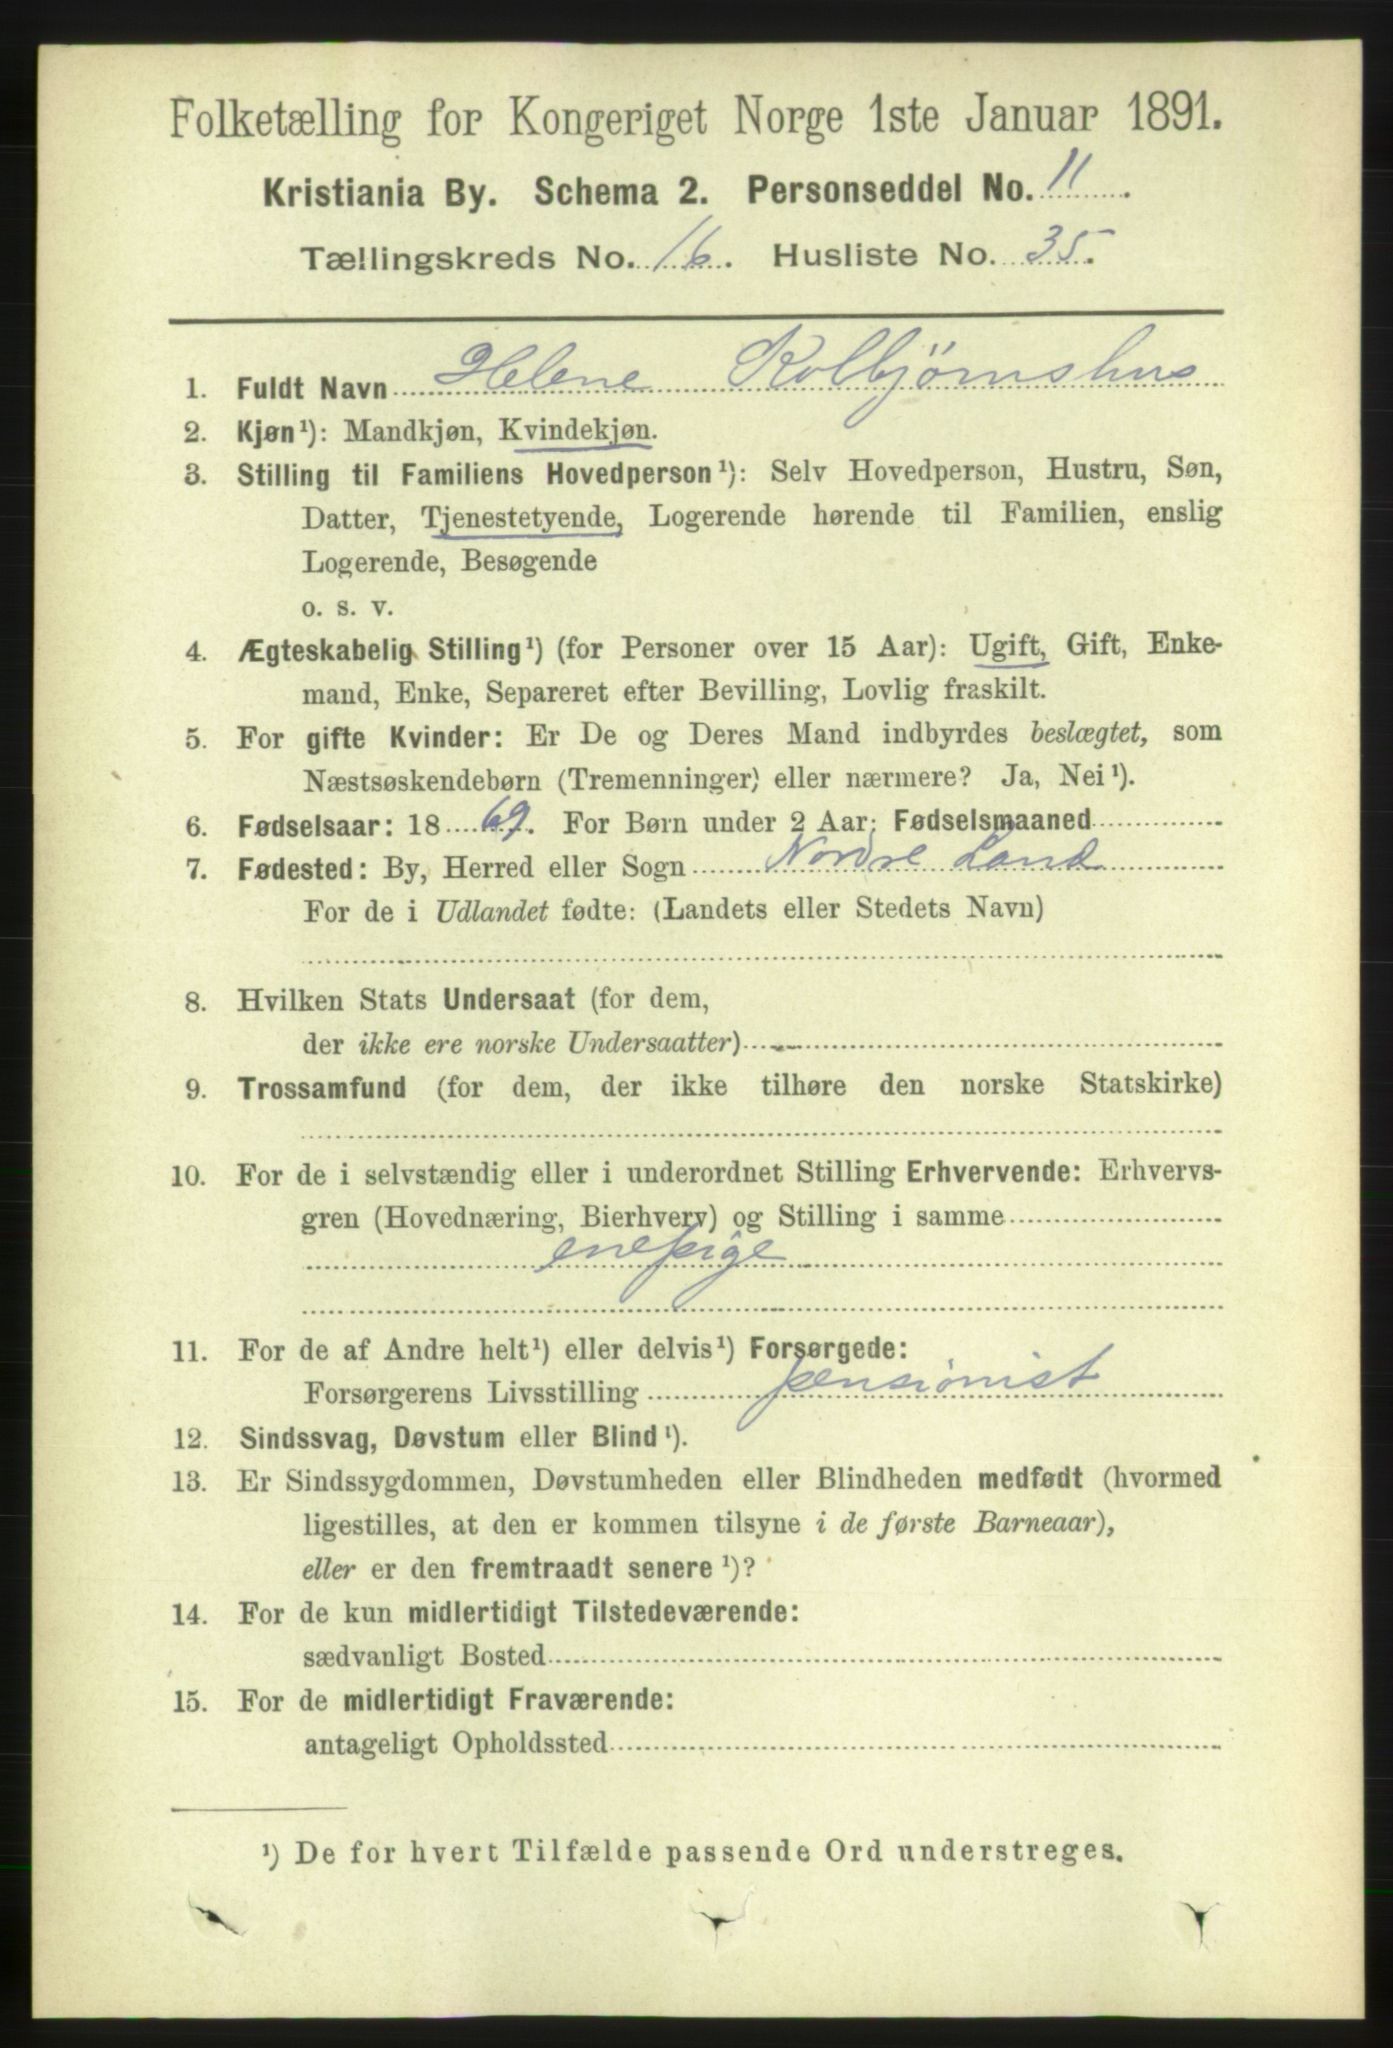 Folketælling for Kongeriget Norge 1ste Januar 1891.
Kristiania By. Schema 2. Personseddel No. 11.
Tællingskreds No. 16. Husliste No. 35.
1. Fuldt Navn Helene Kolbjørnshus
2. Kjøn¹): Mandkjøn, Kvindekjøn.
3. Stilling til Familiens Hovedperson¹): Selv Hovedperson, Hustru, Søn,
Datter, Tjenestetyende, Logerende hørende til Familien, enslig
Logerende, Besøgende
o. s. v.
4. Ægteskabelig Stilling¹) (for Personer over 15 Aar): Ugift, Gift, Enke-
mand, Enke, Separeret efter Bevilling, Lovlig fraskilt.
5. For gifte Kvinder: Er De og Deres Mand indbyrdes beslægtet, som
Næstsøskendebørn (Tremenninger) eller nærmere? Ja, Nei¹).
6. Fødselsaar: 1869. For Børn under 2 Aar: Fødselsmaaned
7. Fødested: By, Herred eller Sogn Nordre Land
For de i Udlandet fødte: (Landets eller Stedets Navn)
8. Hvilken Stats Undersaat (for dem,
der ikke ere norske Undersaatter)
9. Trossamfund (for dem, der ikke tilhøre den norske Statskirke)
10. For de i selvstændig eller i underordnet Stilling Erhvervende: Erhvervs-
gren (Hovednæring, Bierhverv) og Stilling i samme
enepige
11. For de af Andre helt¹) eller delvis¹) Forsørgede:
Forsørgerens Livsstilling pensionist
12. Sindssvag, Døvstum eller Blind¹).
13. Er Sindssygdommen, Døvstumheden eller Blindheden medfødt (hvormed
ligestilles, at den er kommen tilsyne i de første Barneaar),
eller er den fremtraadt senere¹)?
14. For de kun midlertidigt Tilstedeværende:
sædvanligt Bosted
15. For de midlertidigt Fraværende:
antageligt Opholdssted
¹) De for hvert Tilfælde passende Ord understreges.